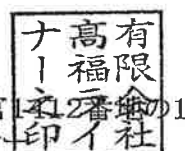 有限会社
髙福ライ
ナー之印
1412番地の1